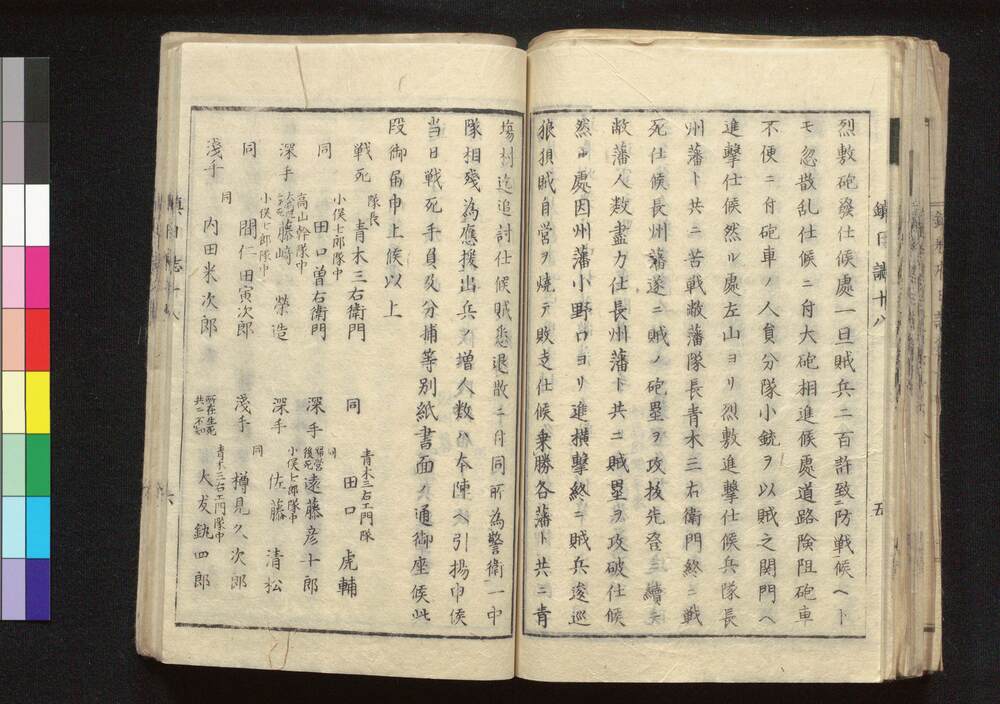 鎮日誌十八
五
烈敷砲發仕候處一旦賊兵二百許致ニ防戦候ヘト
モ忽散乱仕候ニ付大砲相進候處道路険阻砲車
不便ニ付砲車ノ人員分隊小銃ヲ以賊之関門ヘ
進撃仕候然ル處左山ヨリ烈敷進撃仕候兵隊長
州藩ト共ニ苦戦敝藩隊長青木三右衛門終ニ戦
死仕候長州藩遂ニ賊ノ砲塁ヲ攻抜先登
敝藩人数盡力仕長州藩ト共ニ賊塁ヲ攻破仕候
然ル處因州藩小野口ヨリ進撗撃終ニ賊兵逡巡
狼狽賊自営ヲ焼テ敗走仕候乗勝各藩ト共ニ青
塲村迄追討仕候賊悉退散ニ付同所為警衛一中
隊相残為應援出兵ノ増人数ハ本陣ヘ引揚申候
當日戦死手負及分捕等別紙書面ノ通御座候此
段御届申上候以上
戦死 隊長 青木三右衛門
同 小俣七郎隊中 田口曽右衛門
深手 高山幹隊中 藤﨑 榮造
同 小俣七郎隊中 間仁田寅次郎
淺手 同 内田米次郎
同 青木三右エ門隊 田口 虎輔
深手 帰営後死 同 遠藤彦十郎
深手 小俣七郎隊中 佐藤 清松
淺手 同 樽見久次郎
所在生死共ニ不知 青木三右エ門隊中 大友銃四郎
鎮日誌十八
六